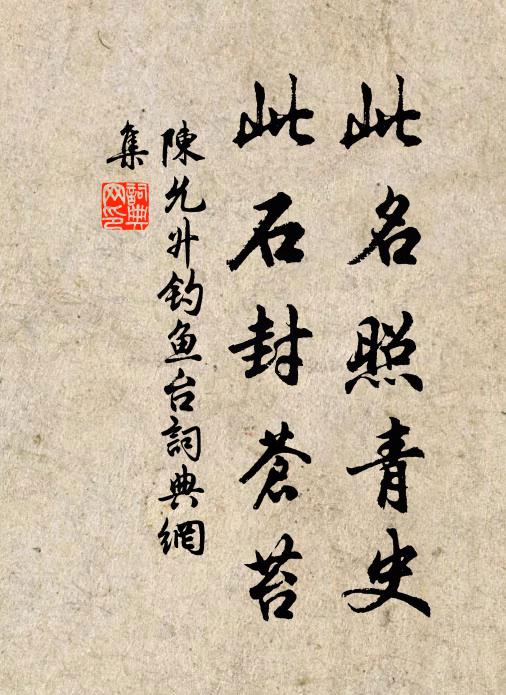 此名照青史
此石封蒼苔
陳允升钓鱼台詞典網
集
詞典网印